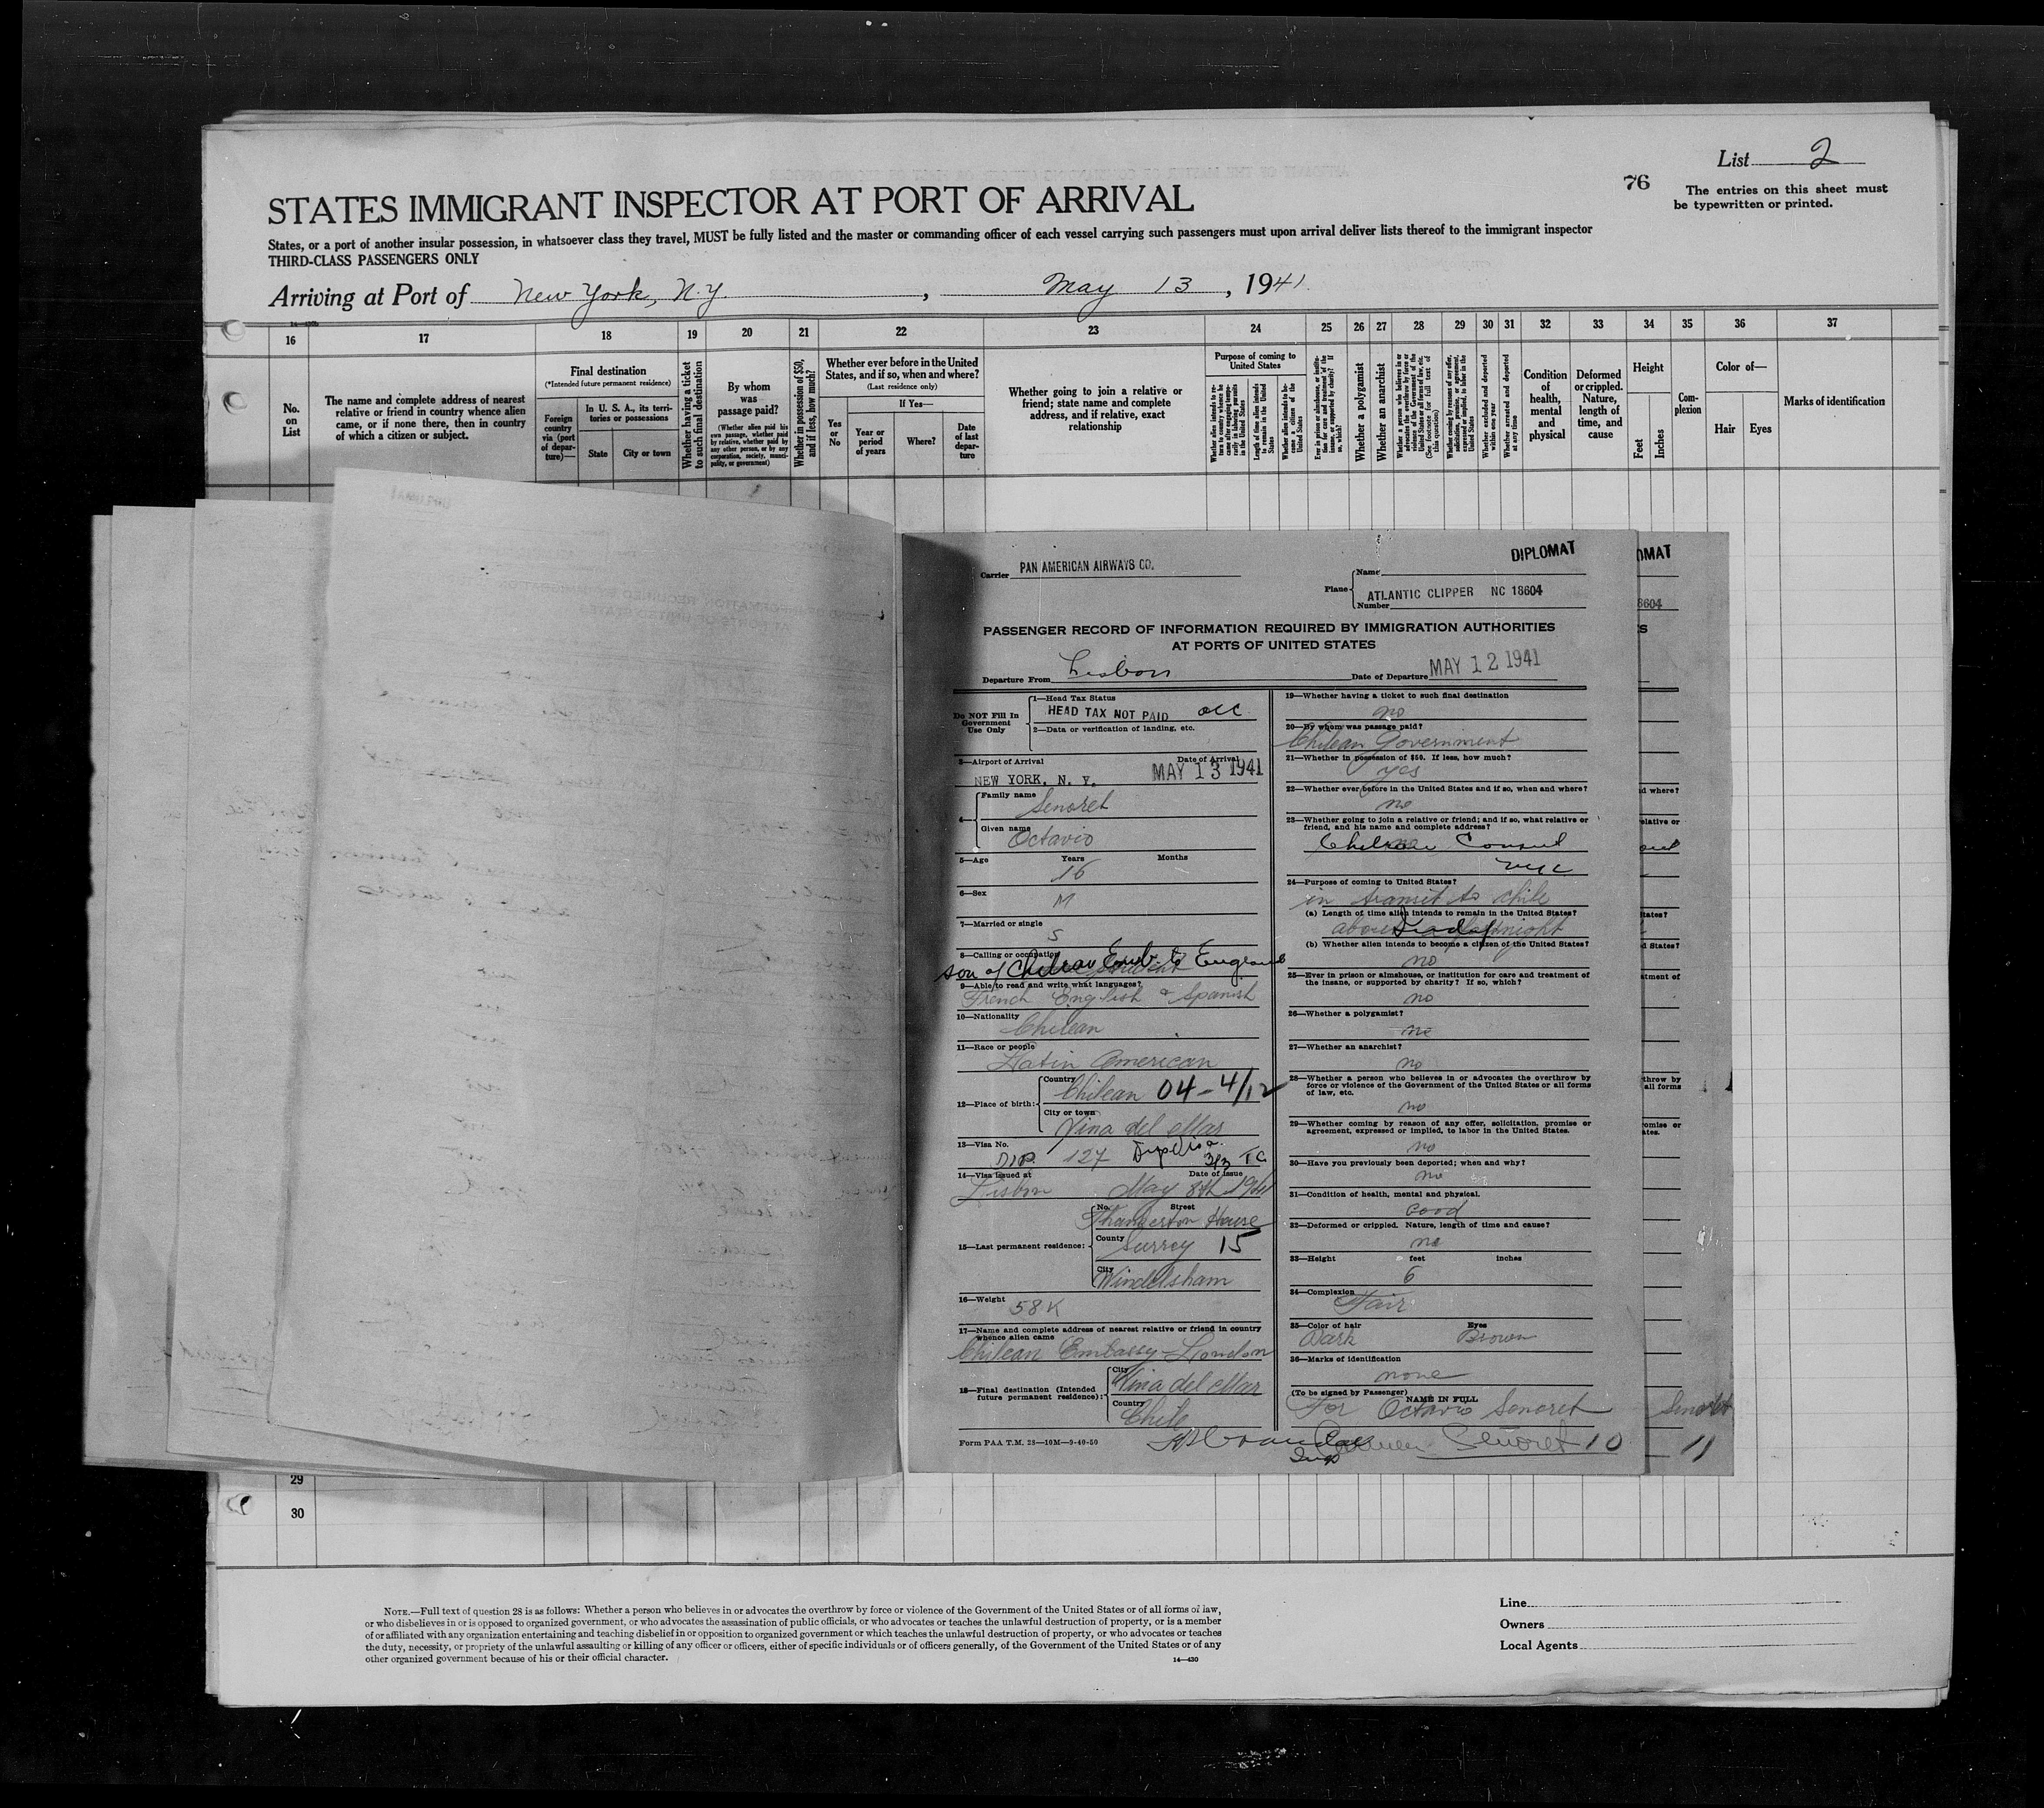 List 2
76
The entries on this sheet must
be typewritten or printed.
STATES IMMIGRANT INSPECTOR AT PORT OF ARRIVAL
States, or a port of another insular possession, in whatsoever class they travel, MUST be fully listed and the master or commanding officer of each vessel carrying such passengers must upon arrival deliver lists thereof to the immigrant inspector
THIRD-CLASS PASSENGERS ONLY
Arriving at Port of New York, N.Y. , May 13 , 1941
16 17 18 19 20 21 22 23 24 25 26 27 28 29 30 31 32 33 34 35 36 37
No.
on
List
The name and complete address of nearest
relative or friend in country whence alien
came, or if none there, then in country
of which a citizen or subject.
Final destination
(*Intended future permanent residence)
Foreign
country
via (port
of depar-
ture)—
In U. S. A., its terri-
tories or possessions
State
City or town
Whether having a ticket
to such final destination
By whom
was
passage paid?
(Whether alien paid his
own passage, whether paid
by relative, whether paid by
any other person, or by any
corporation, society, munici-
pality, or government)
Whether in possession of $50,
and if less, how much?
Whether ever before in the United
States, and if so, when and where?
(Last residence only)
Yes
or
No
If Yes—
Year or
period
of years
Where?
Date
of last
depar-
ture
Whether going to join a relative or
friend; state name and complete
address, and if relative, exact
relationship
Purpose of coming to
United States
Whether alien intends to re-
turn to country whence he
came after engaging tempo-
rarily in laboring pursuits
in the United States
Length of time alien intends
to remain in the United
States
Whether alien intends to be-
come a citizen of the
United States
Ever in prison or almshouse, or institu-
tion for care and treatment of the
insane, or supported by charity? If
so, which?
Whether a polygamist
Whether an anarchist
Whether a person who believes in or
advocates the overthrow by force or
violence of the Government of the
United States or all forms of law, etc.
(See footnote for full text of
this question)
Whether coming by reason of any offer,
solicitation, promise, or agreement,
expressed or implied, to labor in the
United States
Whether excluded and deported
within one year
Whether arrested and deported
at any time
Condition
of
health,
mental
and
physical
Deformed
or crippled.
Nature,
length of
time, and
cause
Height
Feet
Inches
Com-
plexion
Color of—
Hair
Eyes
Marks of identification
DIPLOMAT
Carrier PAN AMERICAN AIRWAYS CO.
Plane
Name
ATLANTIC CLIPPER NC 18604
Number
PASSENGER RECORD OF INFORMATION REQUIRED BY IMMIGRATION AUTHORITIES
AT PORTS OF UNITED STATES
Departure From Lisbon
Date of Departure MAY 12 1941
Do NOT Fill In
Government
Use Only
1—Head Tax Status
HEAD TAX NOT PAID
2—Data or verification of landing, etc.
3—Airport of Arrival Date of Arrival
NEW YORK, N. Y. MAY 13 1941
4—
Family name
Senoret
Given name
Octavio
5—Age Years Months
16
6—Sex
M
7—Married or single
S
8—Calling or occupation
son of Chilean Emb. to England
9—Able to read and write what languages?
French English & Spanish
10—Nationality
Chilean
11—Race or people
Latin American
12—Place of birth:
Country
Chilean 04-4/12
City or town
Vina del Mar
13—Visa No.
DIP. 127 Dip Visa 3(3)
14—Visa issued at Date of issue
Lisbon May 8th 1941
15—Last permanent residence:
No. Street
House
County
Surrey 15
City
Windelsham
16—Weight
58 K
17—Name and complete address of nearest relative or friend in country
whence alien came
Chilean Embassy - London
18—Final destination (Intended
future permanent residence):
City
Vina del Mar
Country
Chile
Form PAA T.M. 28—10M—9-40-50
19—Whether having a ticket to such final destination
no
20—By whom was passage paid?
Chilean Government
21—Whether in possession of $50. If less, how much?
yes
22—Whether ever before in the United States and if so, when and where?
no
23—Whether going to join a relative or friend; and if so, what relative or
friend, and his name and complete address?
Chilean Consul
NYC
24—Purpose of coming to United States?
in transit to Chile
(a) Length of time alien intends to remain in the United States?
(b) Whether alien intends to become a citizen of the United States?
no
25—Ever in prison or almshouse, or institution for care and treatment of
the insane, or supported by charity? If so, which?
no
26—Whether a polygamist?
no
27—Whether an anarchist?
no
28—Whether a person who believes in or advocates the overthrow by
force or violence of the Government of the United States or all forms
of law, etc.
no
29—Whether coming by reason of any offer, solicitation, promise or
agreement, expressed or implied, to labor in the United States.
no
30—Have you previously been deported; when and why?
no
31—Condition of health, mental and physical.
Good
32—Deformed or crippled. Nature, length of time and cause?
no
33—Height feet inches
6
34—Complexion
Fair
35—Color of hair Eyes
Dark Brown
36—Marks of identification
none
(To be signed by Passenger)
NAME IN FULL
For Octavio Senoret
Carmen Senoret 10
11
29
30
NOTE.—Full text of question 28 is as follows: Whether a person who believes in or advocates the overthrow by force or violence of the Government of the United States or of all forms of law,
or who disbelieves in or is opposed to organized government, or who advocates the assassination of public officials, or who advocates or teaches the unlawful destruction of property, or is a member
of or affiliated with any organization entertaining and teaching disbelief in or opposition to organized government or which teaches the unlawful destruction of property, or who advocates or teaches
the duty, necessity, or propriety of the unlawful assaulting or killing of any officer or officers, either of specific individuals or of officers generally, of the Government of the United States or of any
other organized government because of his or their official character.
14—430
Line
Owners
Local Agents